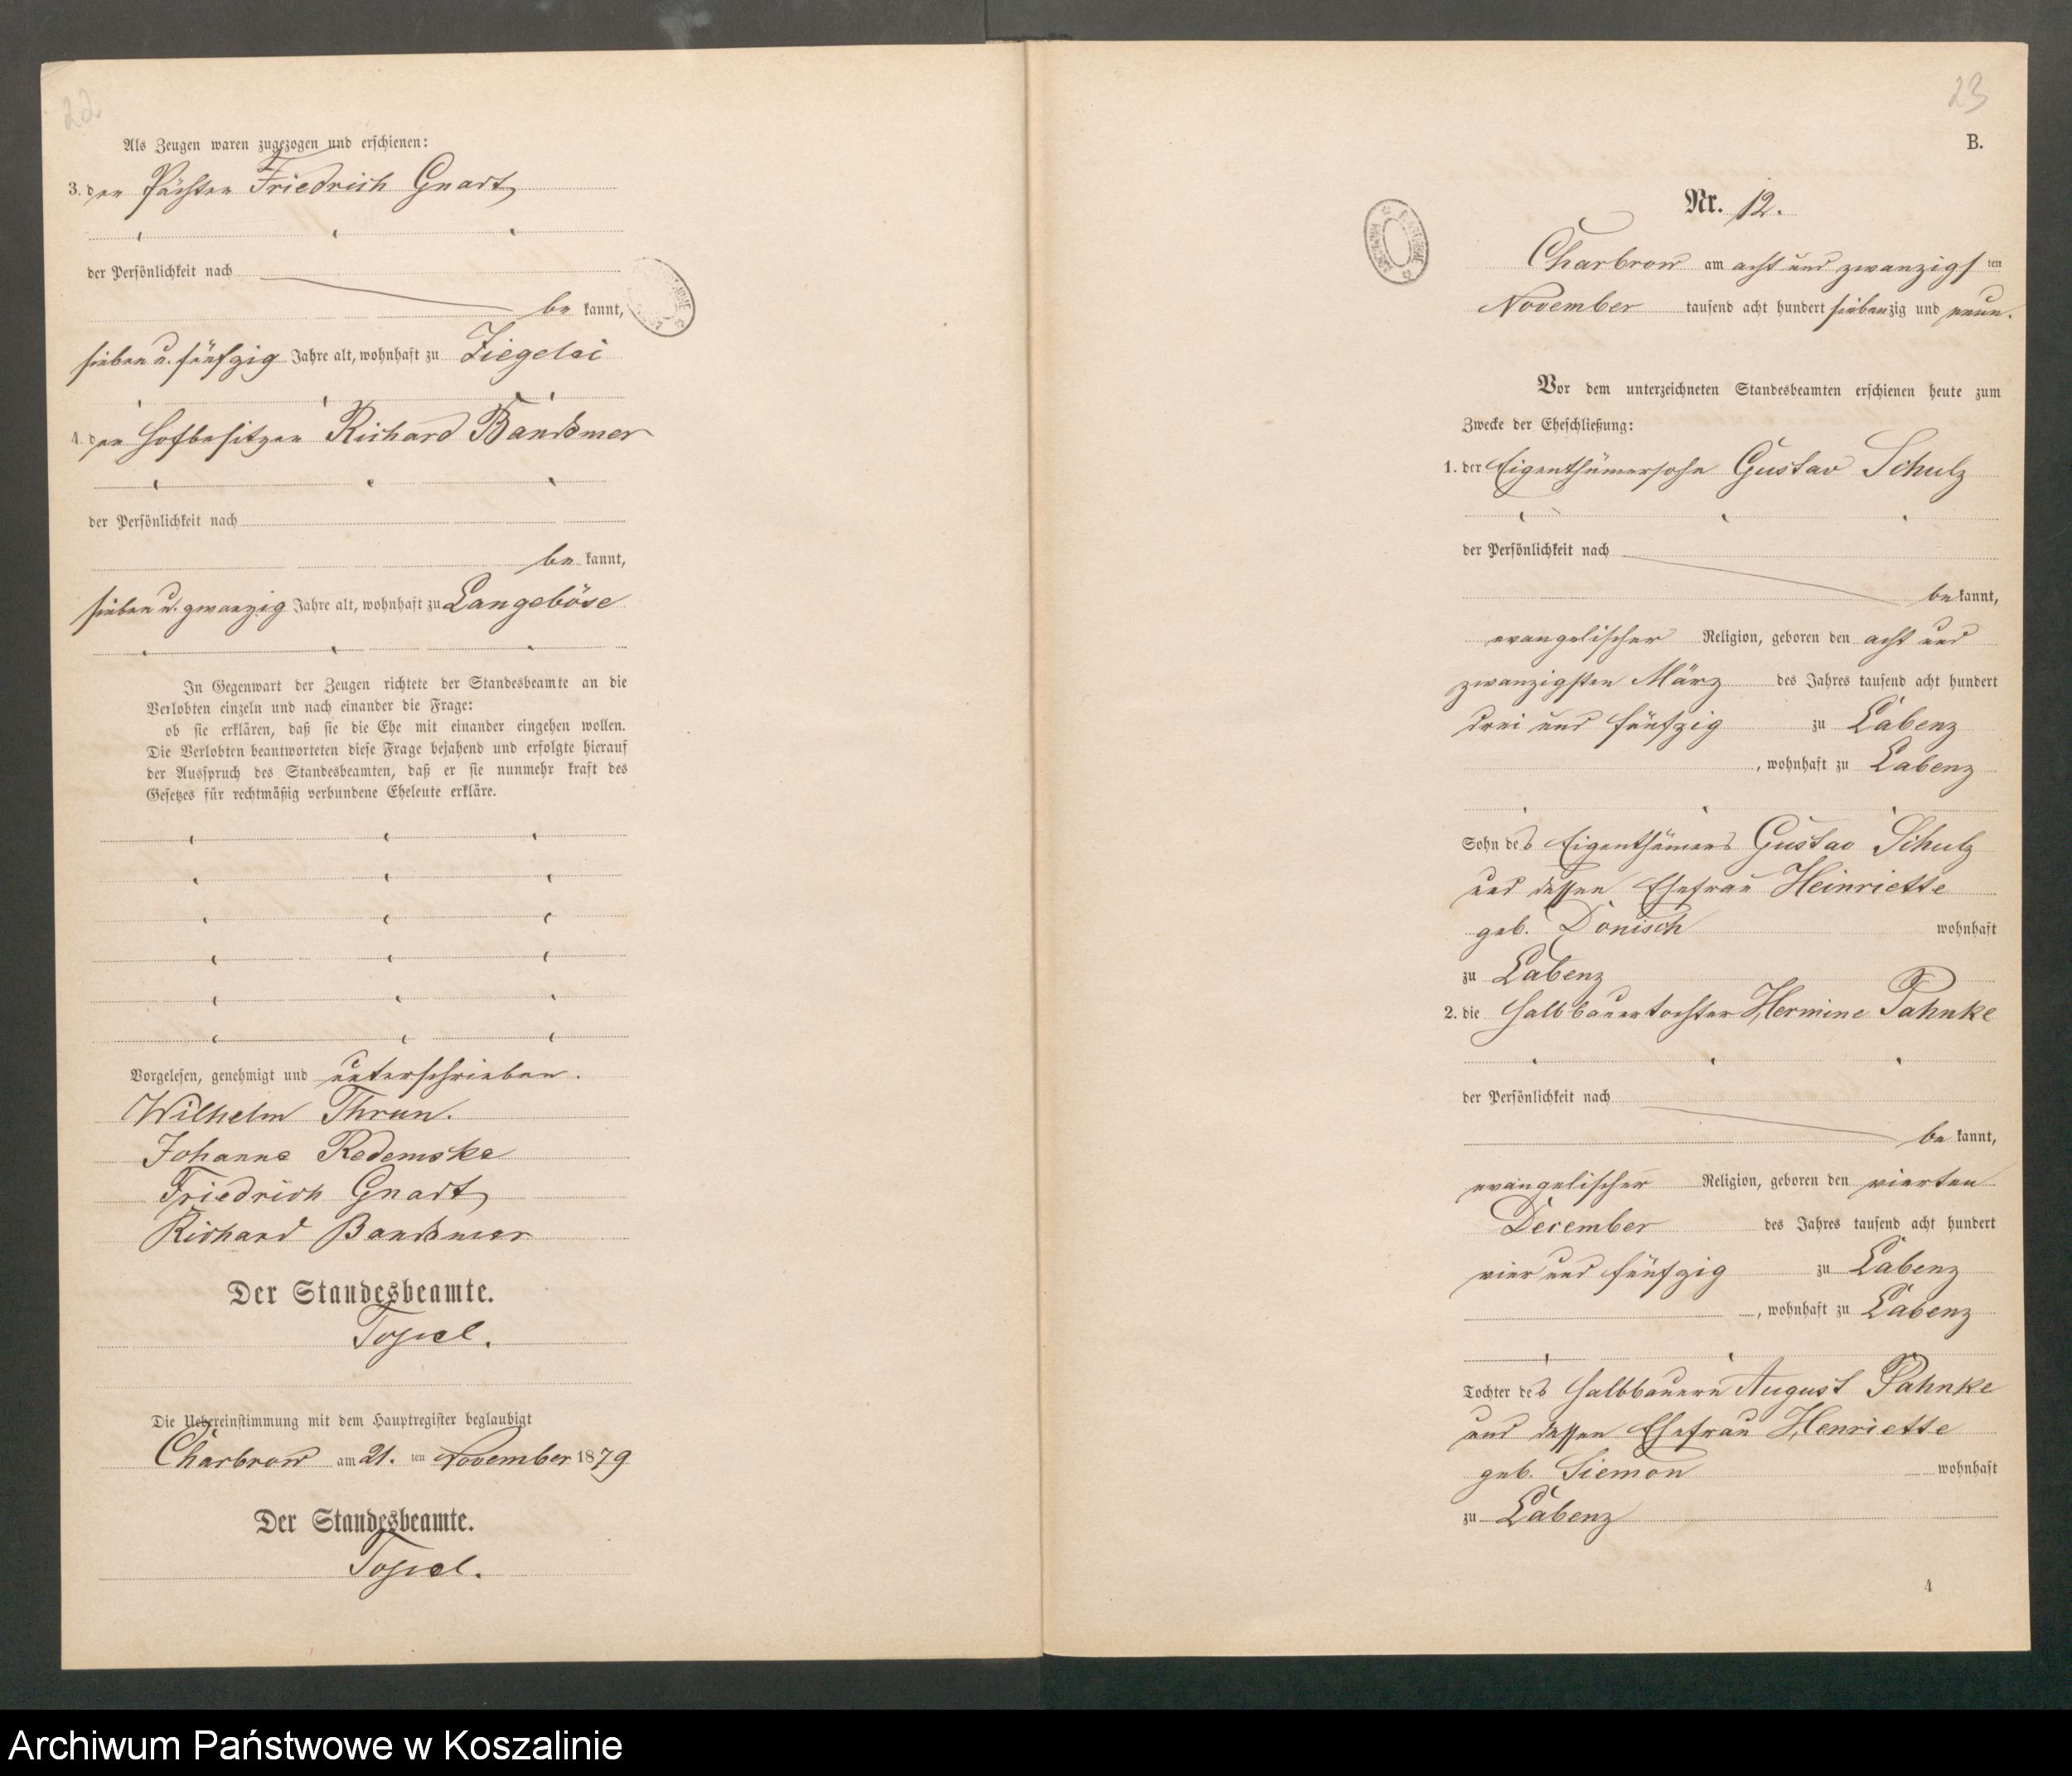 22
Als Zeugen waren zugezogen und erschienen:
3. der Pächter Friedrich Gnadt
der Persönlichkeit nach
be kannt,
sieben u. fünfzig Jahre alt, wohnhaft zu Ziegelei
4. der Hofbesitzer Richard Bandemer
der Persönlichkeit nach
be kannt,
sieben u. zwanzig Jahre alt, wohnhaft zu Langeböse
In Gegenwart der Zeugen richtete der Standesbeamte an die
Verlobten einzeln und nach einander die Frage:
ob sie erklären, daß sie die Ehe mit einander eingehen wollen.
Die Verlobten beantworteten diese Frage bejahend und erfolgte hierauf
der Ausspruch des Standesbeamten, daß er sie nunmehr kraft des
Gesetzes für rechtmäßig verbundene Eheleute erkläre.
Vorgelesen, genehmigt und unterschrieben.
Wilhelm Thrun.
Johanne Rademske
Friedrich Gnadt
Richard Bandemer
Der Standesbeamte.
Die Uebereinstimmung mit dem Hauptregister beglaubigt
Charbrow am 21. ten November 1879
Der Standesbeamte.
23
B.
Nr. 12.
Charbrow am acht und zwanzigs ten
November tausend acht hundert siebenzig und neun.
Vor dem unterzeichneten Standesbeamten erschienen heute zum
Zwecke der Eheschließung:
1. der Eigenthümersohn Gustav Schulz
der Persönlichkeit nach
be kannt,
evangelischer Religion, geboren den acht und
zwanzigsten März des Jahres tausend acht hundert
drei und fünfzig zu Labenz
, wohnhaft zu Labenz
Sohn des Eigenthümers Gustav Schulz
und dessen Ehefrau Heinriette
geb. Dönisch wohnhaft
zu Labenz
2. die Halbbauertochter Hermine Pahnke
der Persönlichkeit nach
be kannt,
evangelischer Religion, geboren den vierten
December des Jahres tausend acht hundert
vier und fünfzig zu Labenz
, wohnhaft zu Labenz
Tochter des Halbbauern August Pahnke
und dessen Ehefrau Henriette
geb. Siemon wohnhaft
zu Labenz
4
Archiwum Państwowe w Koszalinie